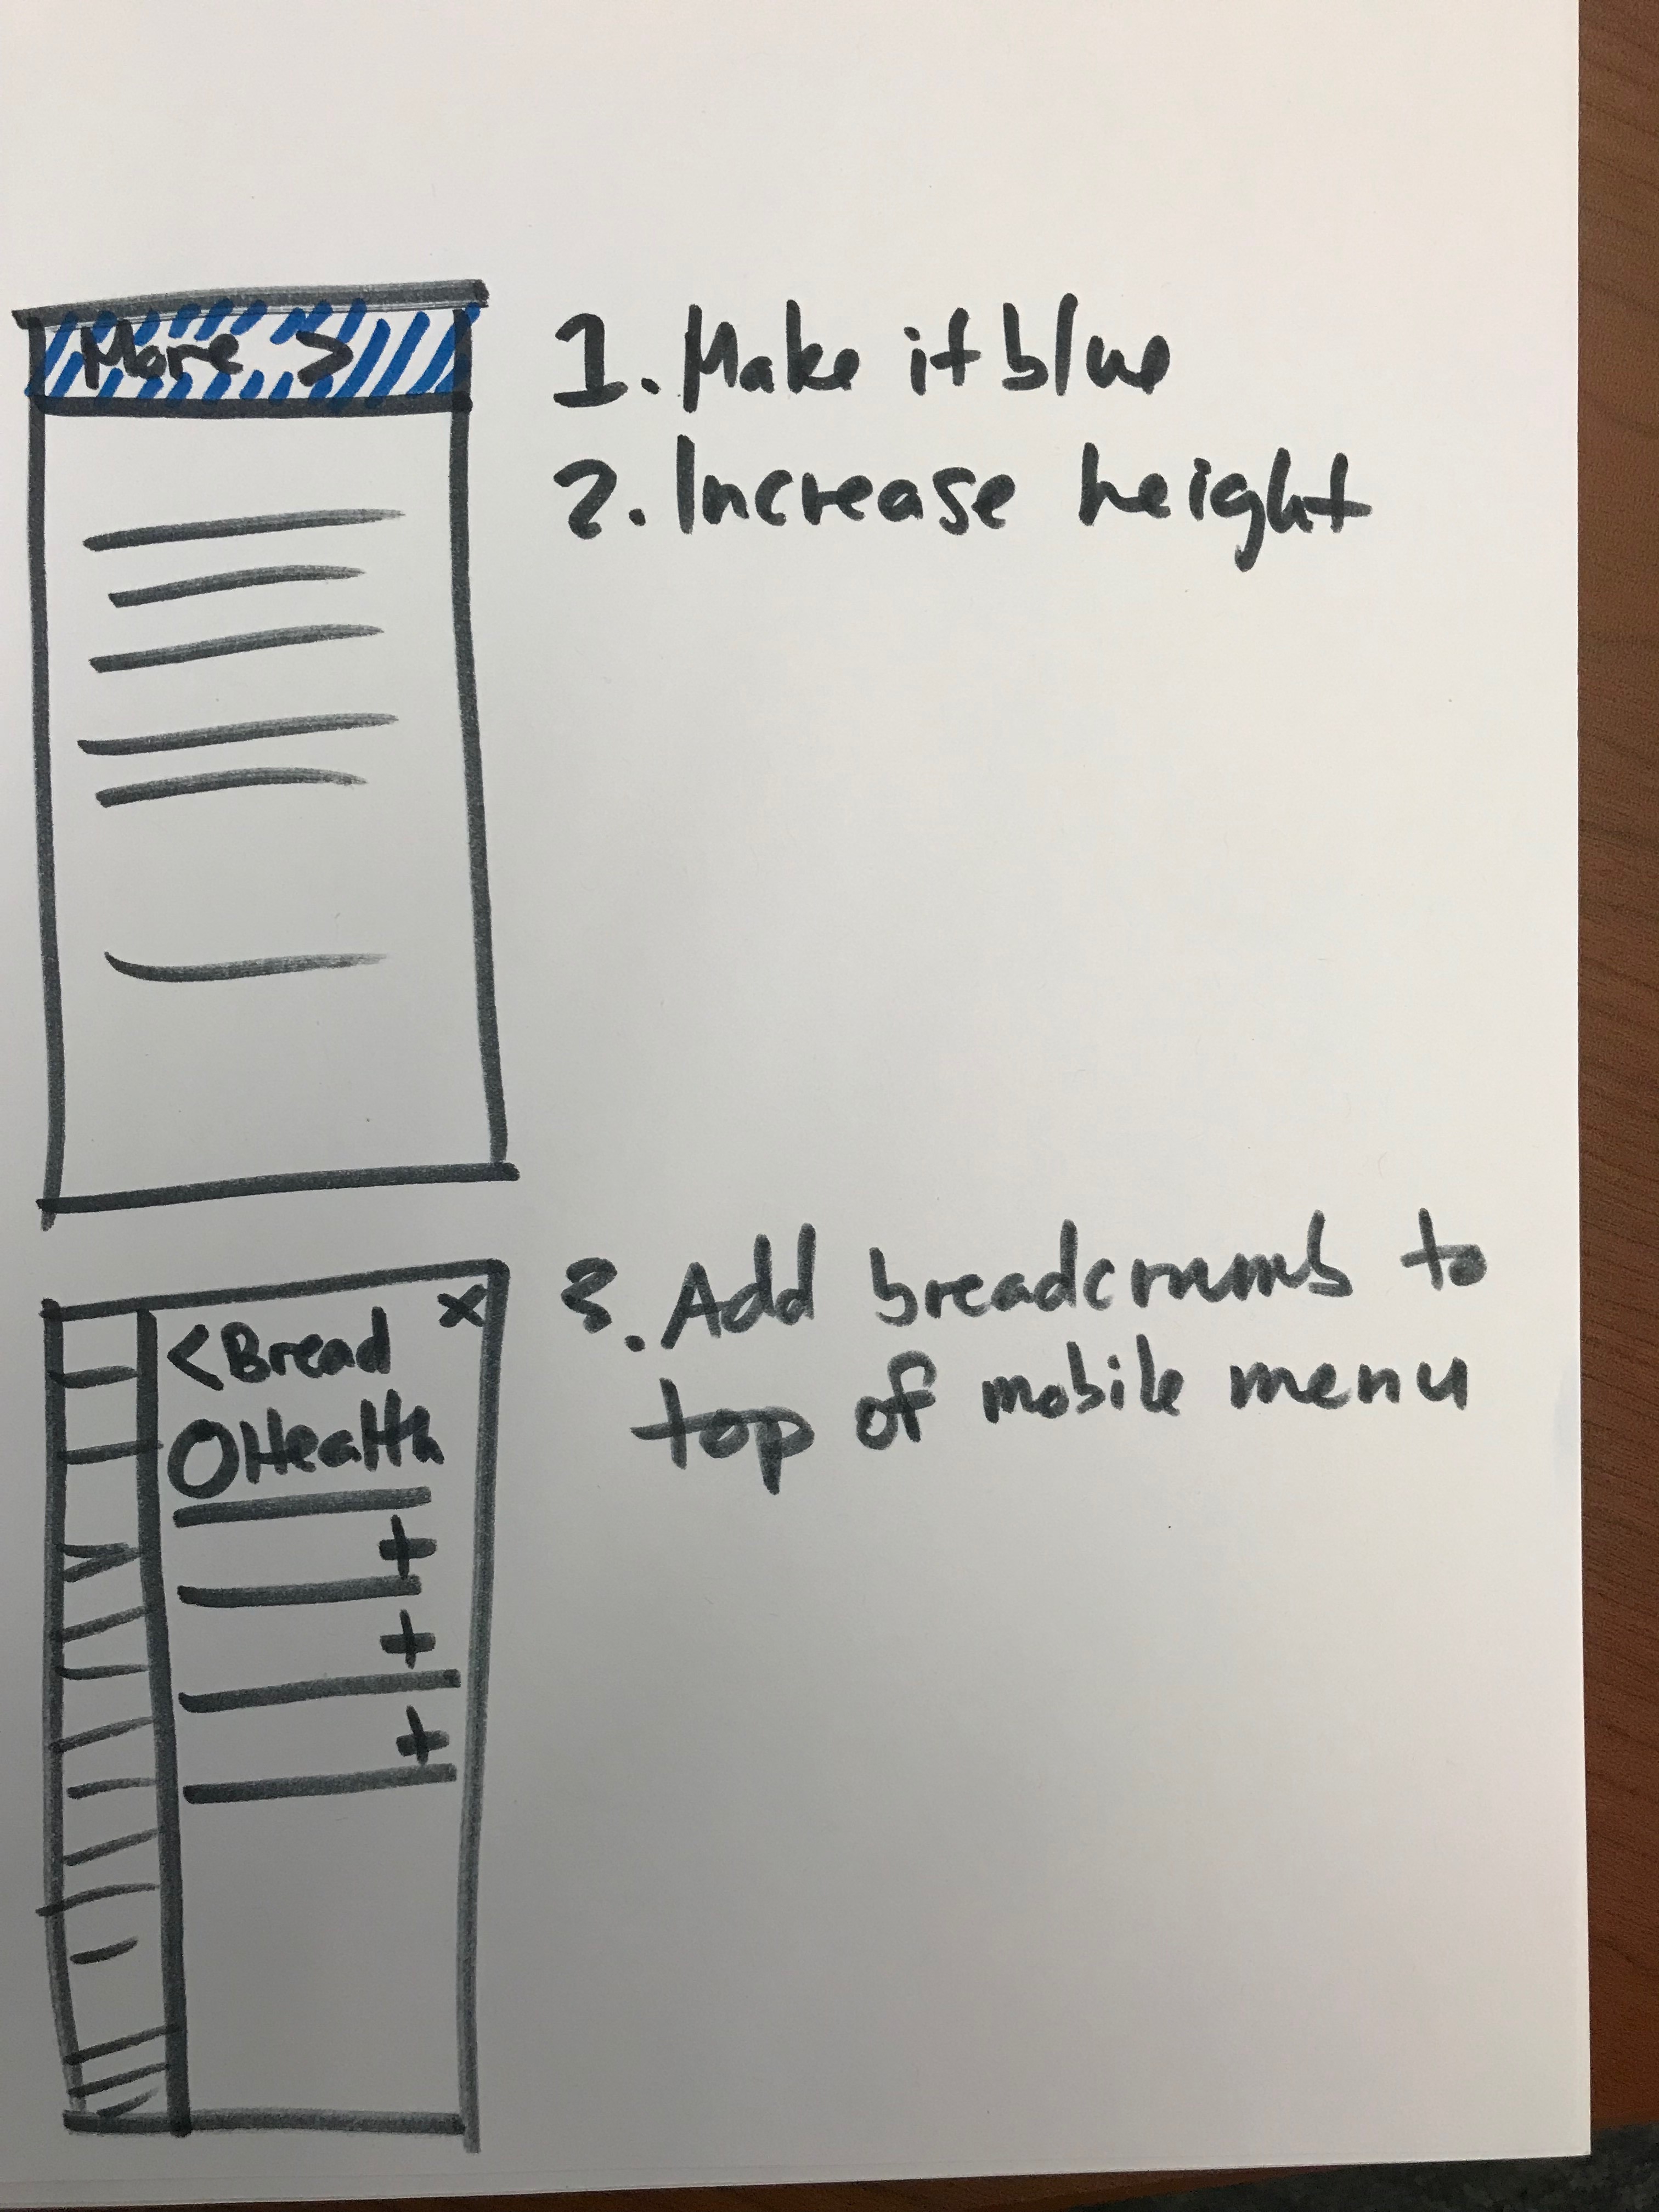 More >
1. Make it blue
2. Increase height
x
<Bread
Health
+
+
+
3. Add breadcrumbs to
top of mobile menu